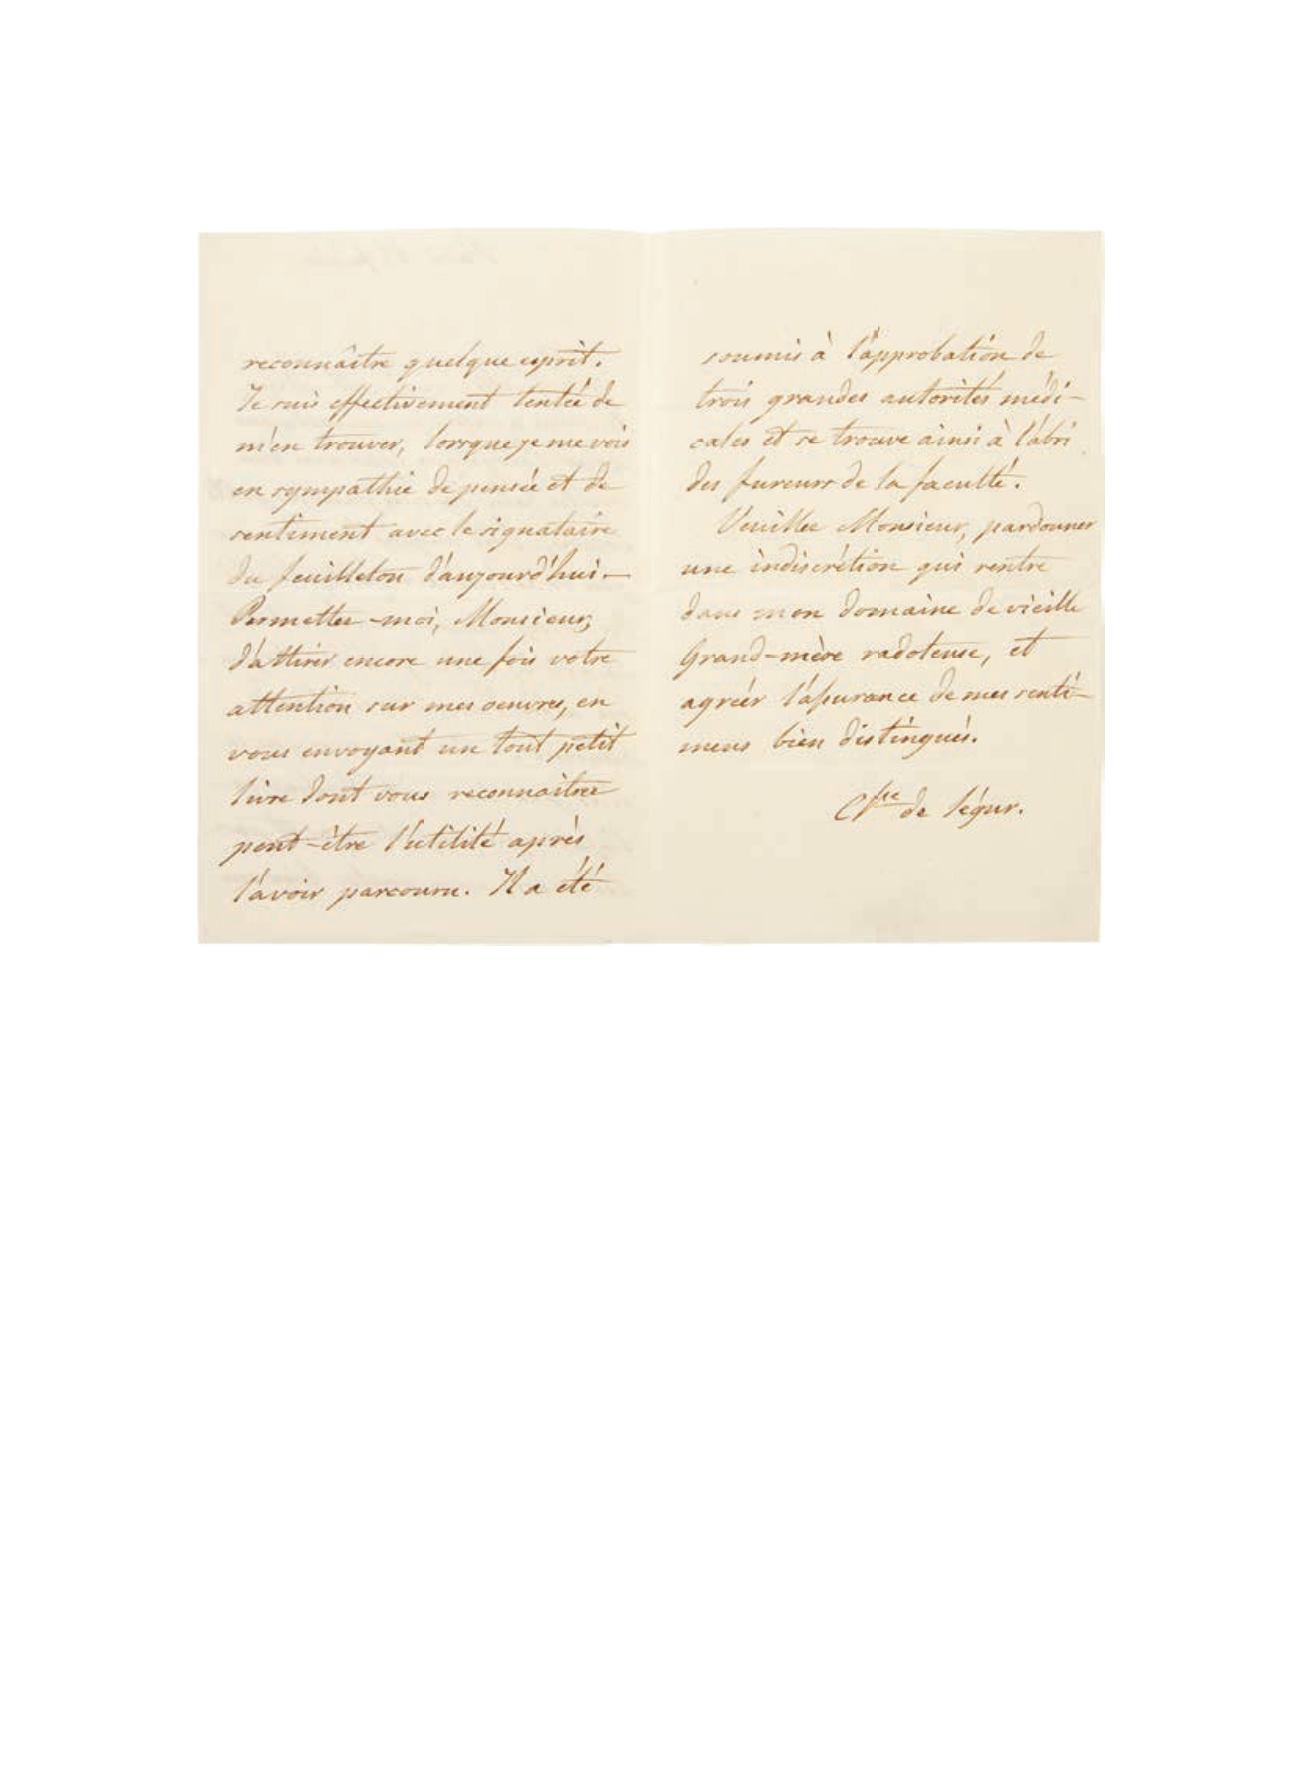 reconnaître quelque esprit.
Je suis effectivement tentée de
m'en trouver, lorsque je me vois
en sympathie de pensée et de
sentiment avec le signataire
du feuilleton d'aujourd'hui. —
Permettez-moi, Monsieur,
d'attirer encore une fois votre
attention sur mes oeuvres, en
vous envoyant un tout petit
livre dont vous reconnaitrez
peut-être l'utilité après
l'avoir parcouru. Il a été
soumis à l'approbation de
trois grandes autorités médi-
cales et se trouve ainsi à l'abri
des fureurs de la faculté.
Veuillez Monsieur, pardonner
une indiscrétion qui rentre
dans mon domaine de vieille
Grand-mère radoteuse, et
agréer l'assurance de mes senti-
mens bien distingués.
Ctsse de Ségur.